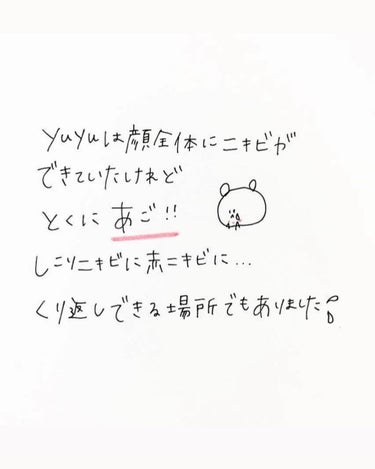 yuyuは顔全体にニキビが
できていたけれど
とくに あご!!
しこりニキビに赤ニキビに...
くり返しできる場所でもありました